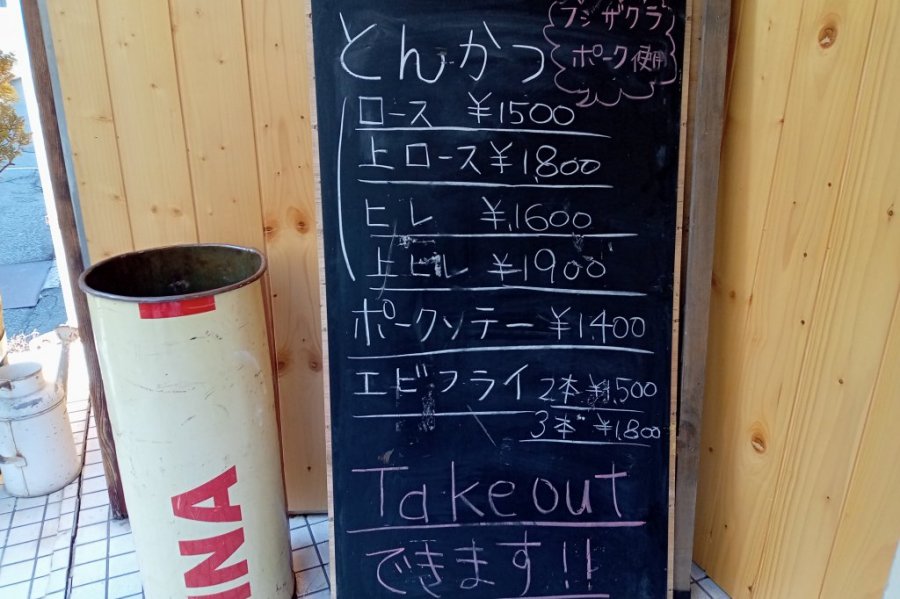 とんかつ
フジザクラ
ポーク使用
ロース ¥1500
上ロース ¥1,800
ヒレ ¥1600
上ヒレ ¥1900
ポークソテー ¥1,400
エビフライ 2本 ¥1,500
3本 ¥1,800
Take out
できます!!
INA